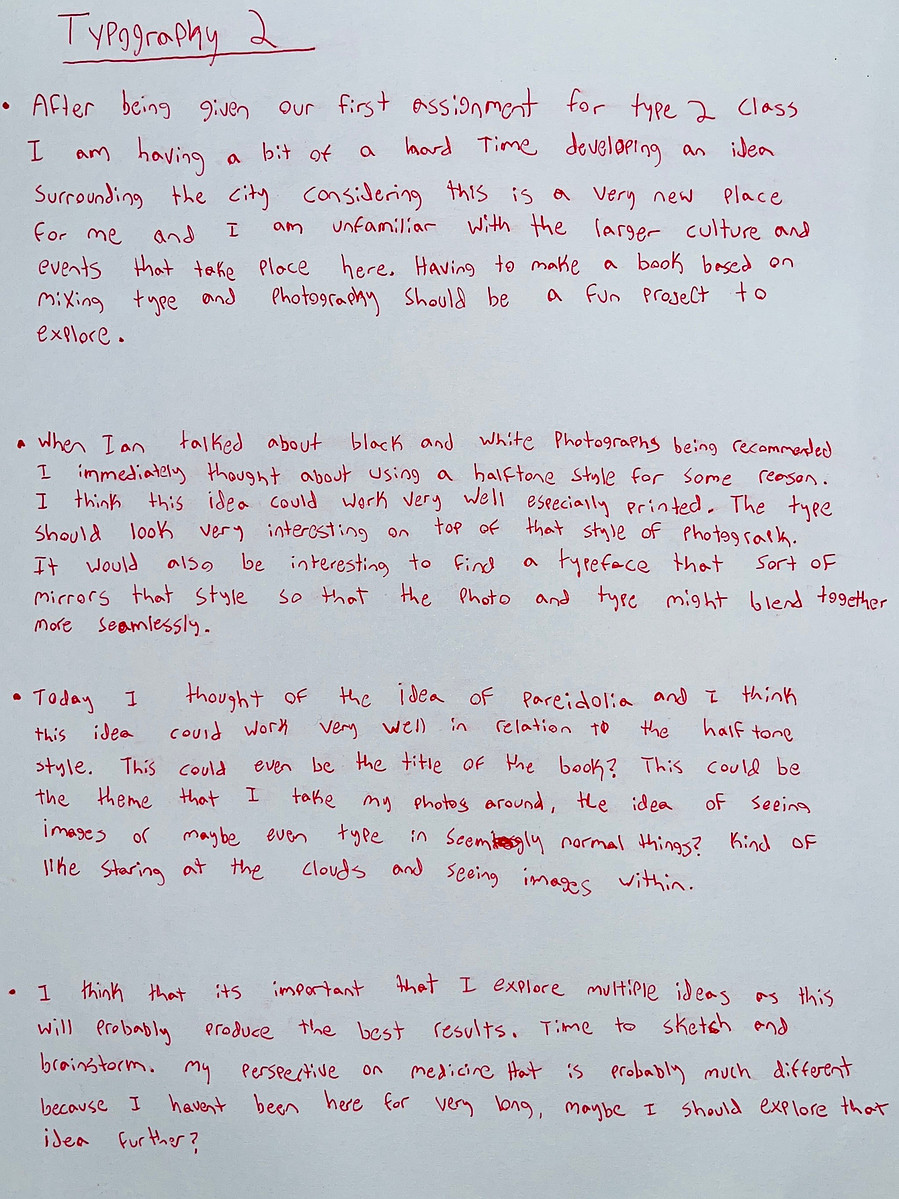 Typography 2
• After being given our first assignment for type 2 class
I am having a bit of a hard time developing an idea
surrounding the city considering this is a very new place
for me and I am unfamiliar with the larger culture and
events that take place here. Having to make a book based on
mixing type and photography should be a fun project to
explore.
• When Ian talked about black and white photographs being recommended
I immediately thought about using a halftone style for some reason.
I think this idea could work very well especially printed. The type
should look very interesting on top of that style of photograph.
It would also be interesting to find a typeface that sort of
mirrors that style so that the photo and type might blend together
more seamlessly.
• Today I thought of the idea of pareidolia and I think
this idea could work very well in relation to the half tone
style. This could even be the title of the book? This could be
the theme that I take my photos around, the idea of seeing
images or maybe even type in seemingly normal things? Kind of
like staring at the clouds and seeing images within.
• I think that its important that I explore multiple ideas as this
will probably produce the best results. Time to sketch and
brainstorm. My perspective on medicine Hat is probably much different
because I havent been here for very long, maybe I should explore that
idea further?